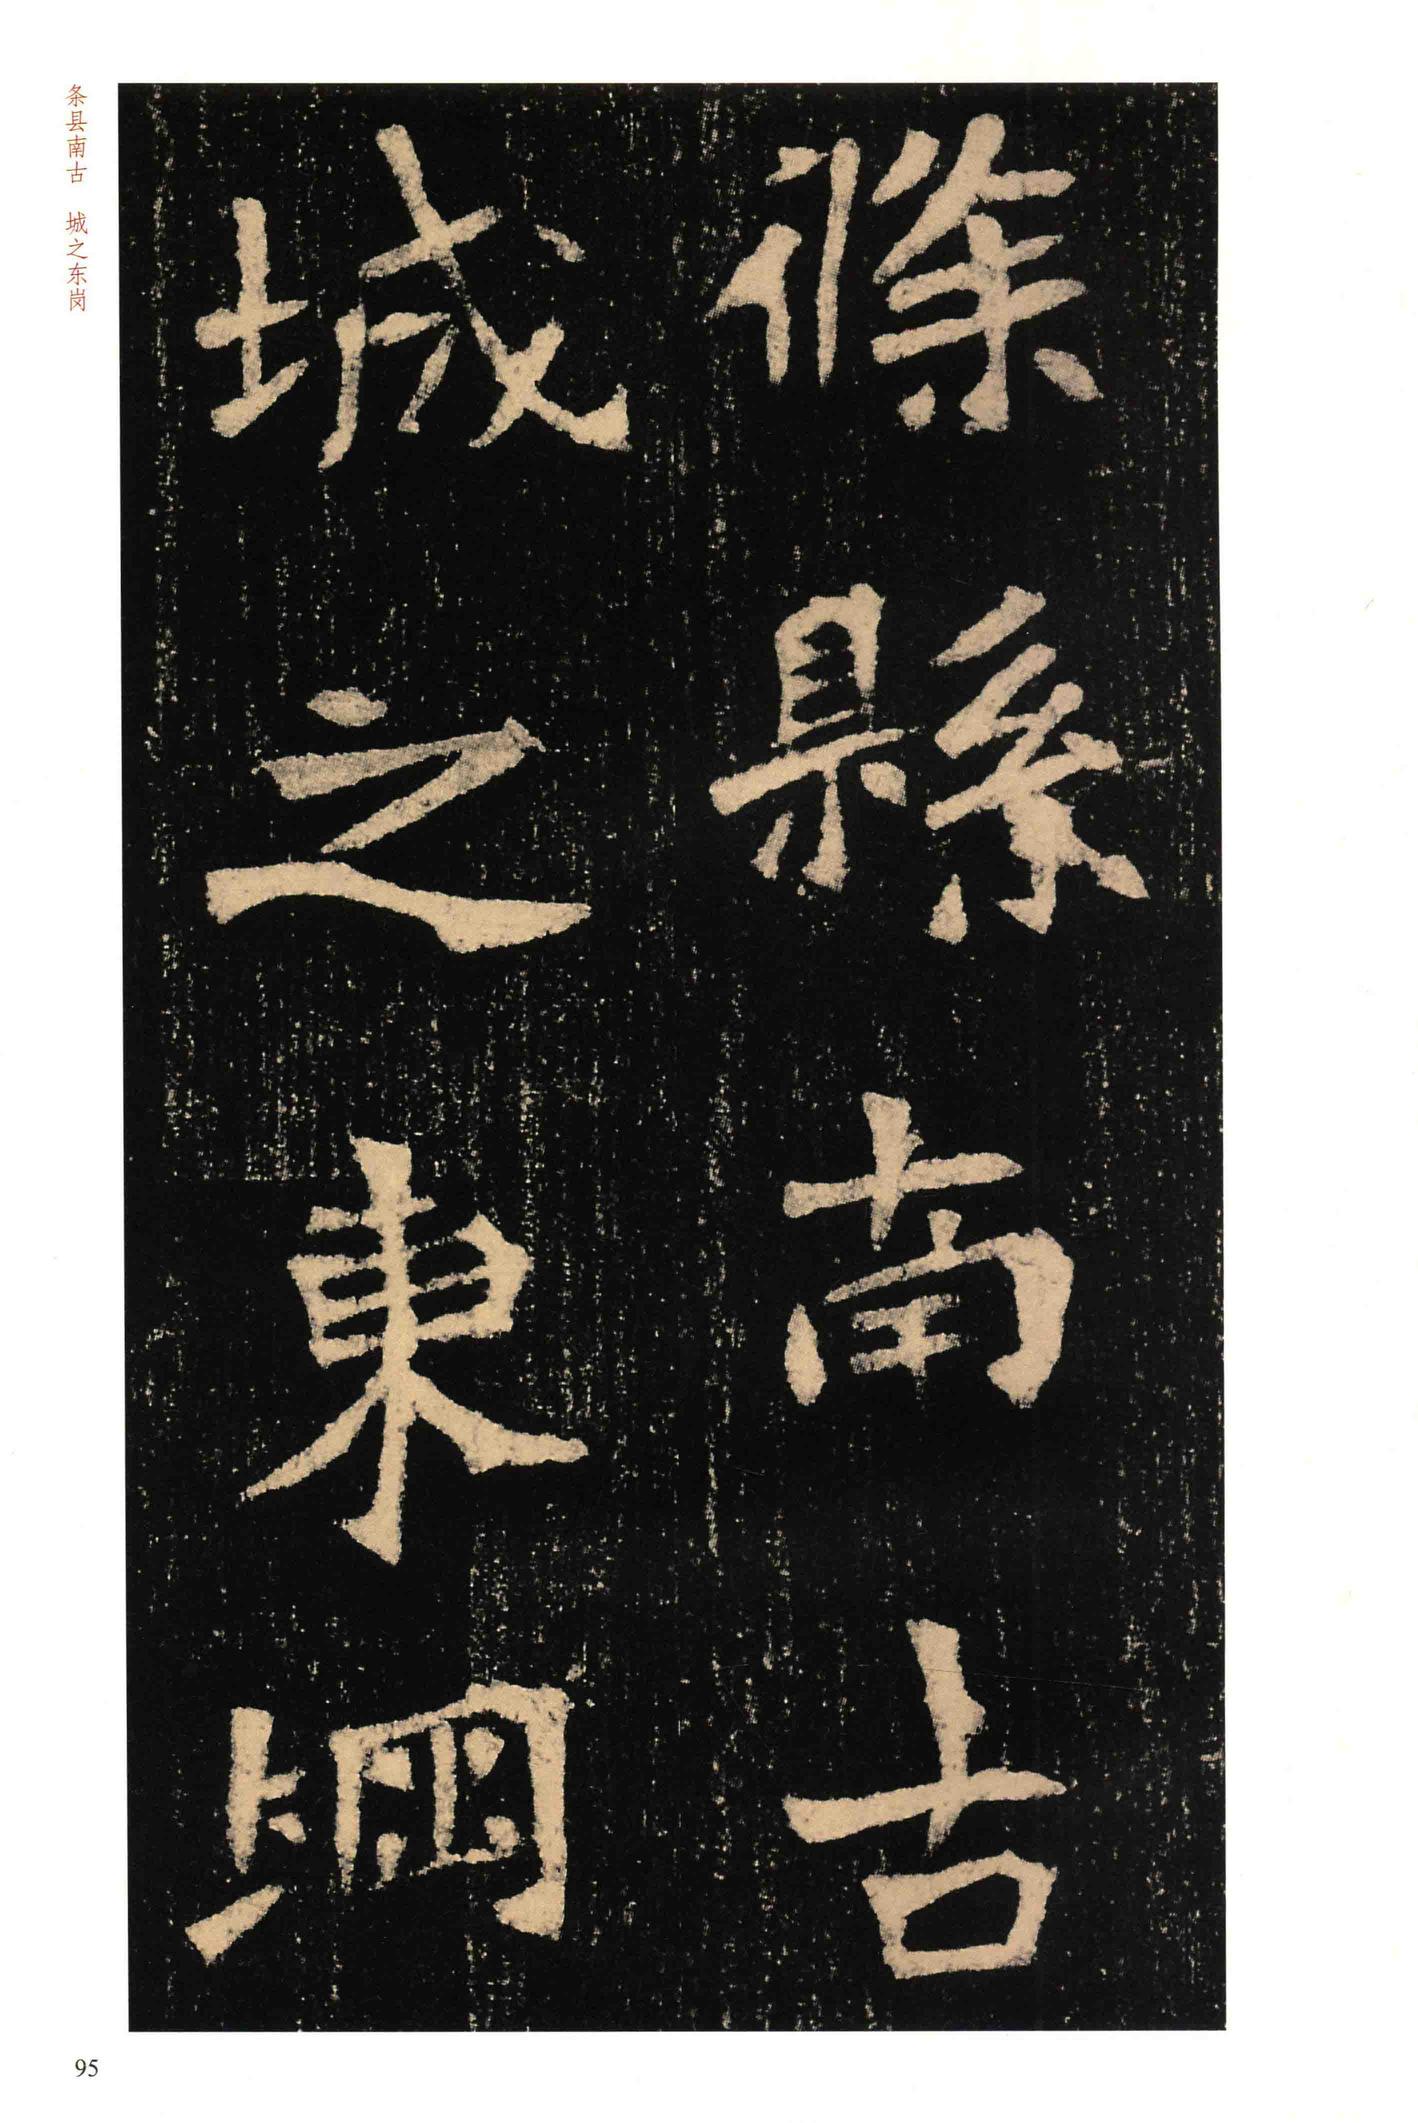 條縣南古
城之東堈
条县南古 城之东岗
95